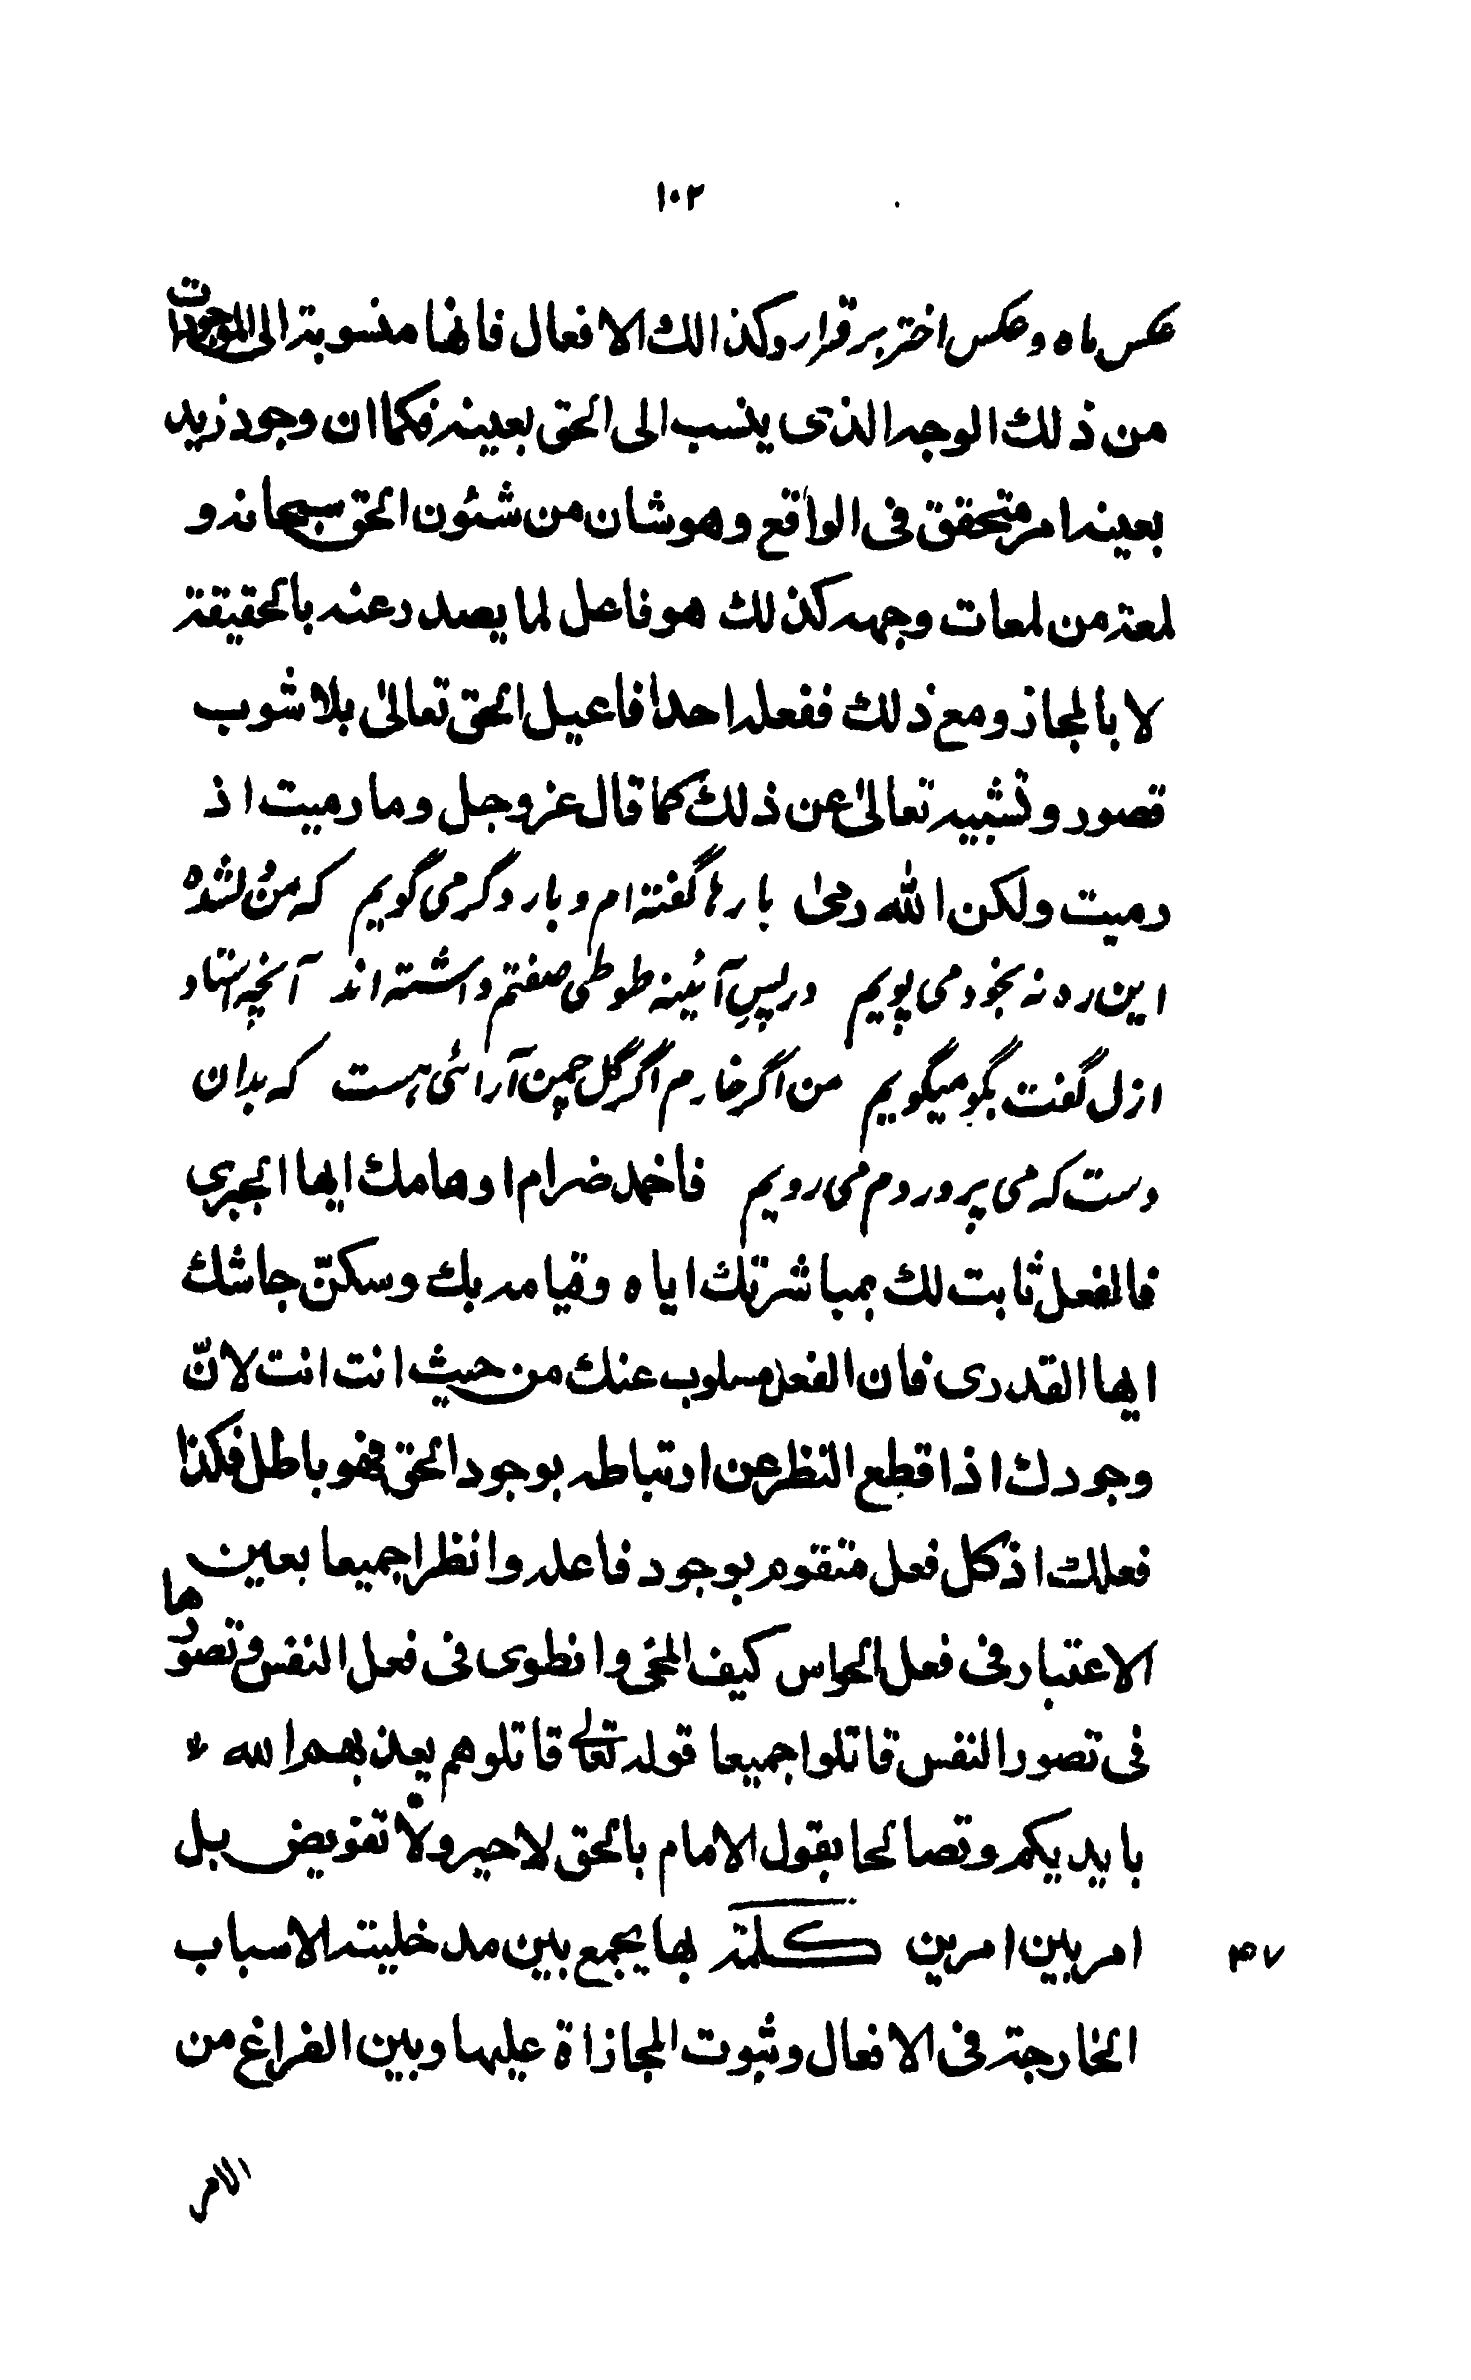 ١٠٢
عكس ماه وعكس اختر بر قرار وكذالك الافعال فانها منسوبة الى الموجودات
من ذلك الوجه الذى ينسب الى الحق بعينه فكما ان وجود زيد
بعينه امر متحقق فى الواقع وهو شان من شئون الحق سبحانه و
لمعة من لمعات وجهه كذلك هو فاعل لما يصدر عنه بالحقيقة
لا بالمجاز ومع ذلك ففعله احد افاعيل الحق تعالىٰ بلا شوب
قصور وتشبيه تعالىٰ عن ذلك كما قال عز وجل وما رميت اذ
رميت ولكن الله رمىٰ بارها گفته ام و بار دگر می گویم که من گم شده
این ره نه بخود می پویم در پسِ آئینه طوطی صفتم داشته اند آنچه استاد
ازل گفت بگو میگویم من اگر خارم اگر گل چمن آرائی هست که بدان
دست که می پروردم می رویم فاخمد ضرام اوهامك ايها الجبرى
فالفعل ثابت لك بمباشرتك اياه وقيامه بك وسكّن جاشك
ايها القدرى فان الفعل مسلوب عنك من حيث انت انت لانّ
وجودك اذا قطع النظر عن ارتباطه بوجود الحق فهو باطل فكذا
فعلك اذ كل فعل متقوم بوجود فاعله وانظرا جميعا بعين
الاعتبار فى فعل الحواس كيف انمحى وانطوى فى فعل النفس وتصورها
فى تصور النفس قاتلوا جميعا قوله تعالى قاتلوهم يعذبهم الله
بايديكم وتصالحا بقول الامام بالحق لا جبر ولا تفويض بل
امر بين امرين كلمة بها يجمع بين مدخلية الاسباب
٣٧
الخارجة فى الافعال وثبوت المجازاة عليها وبين الفراغ من
الامر